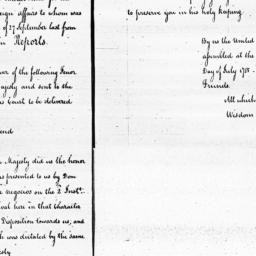 eign affairs to whom was
of 27 September last from
Reports.
or of the following Tenor
ajesty and sent to the
Court to be delivered
end
Majesty did us the honor
s presented to us by Don
Negocios on the 2 Inst.
val here in that Character
Disposition towards us; and
h was dictated by the same
to preserve you in his holy keeping.
By us the United
assembled at the
Day of July 178
Friends.
All which
Wisdom